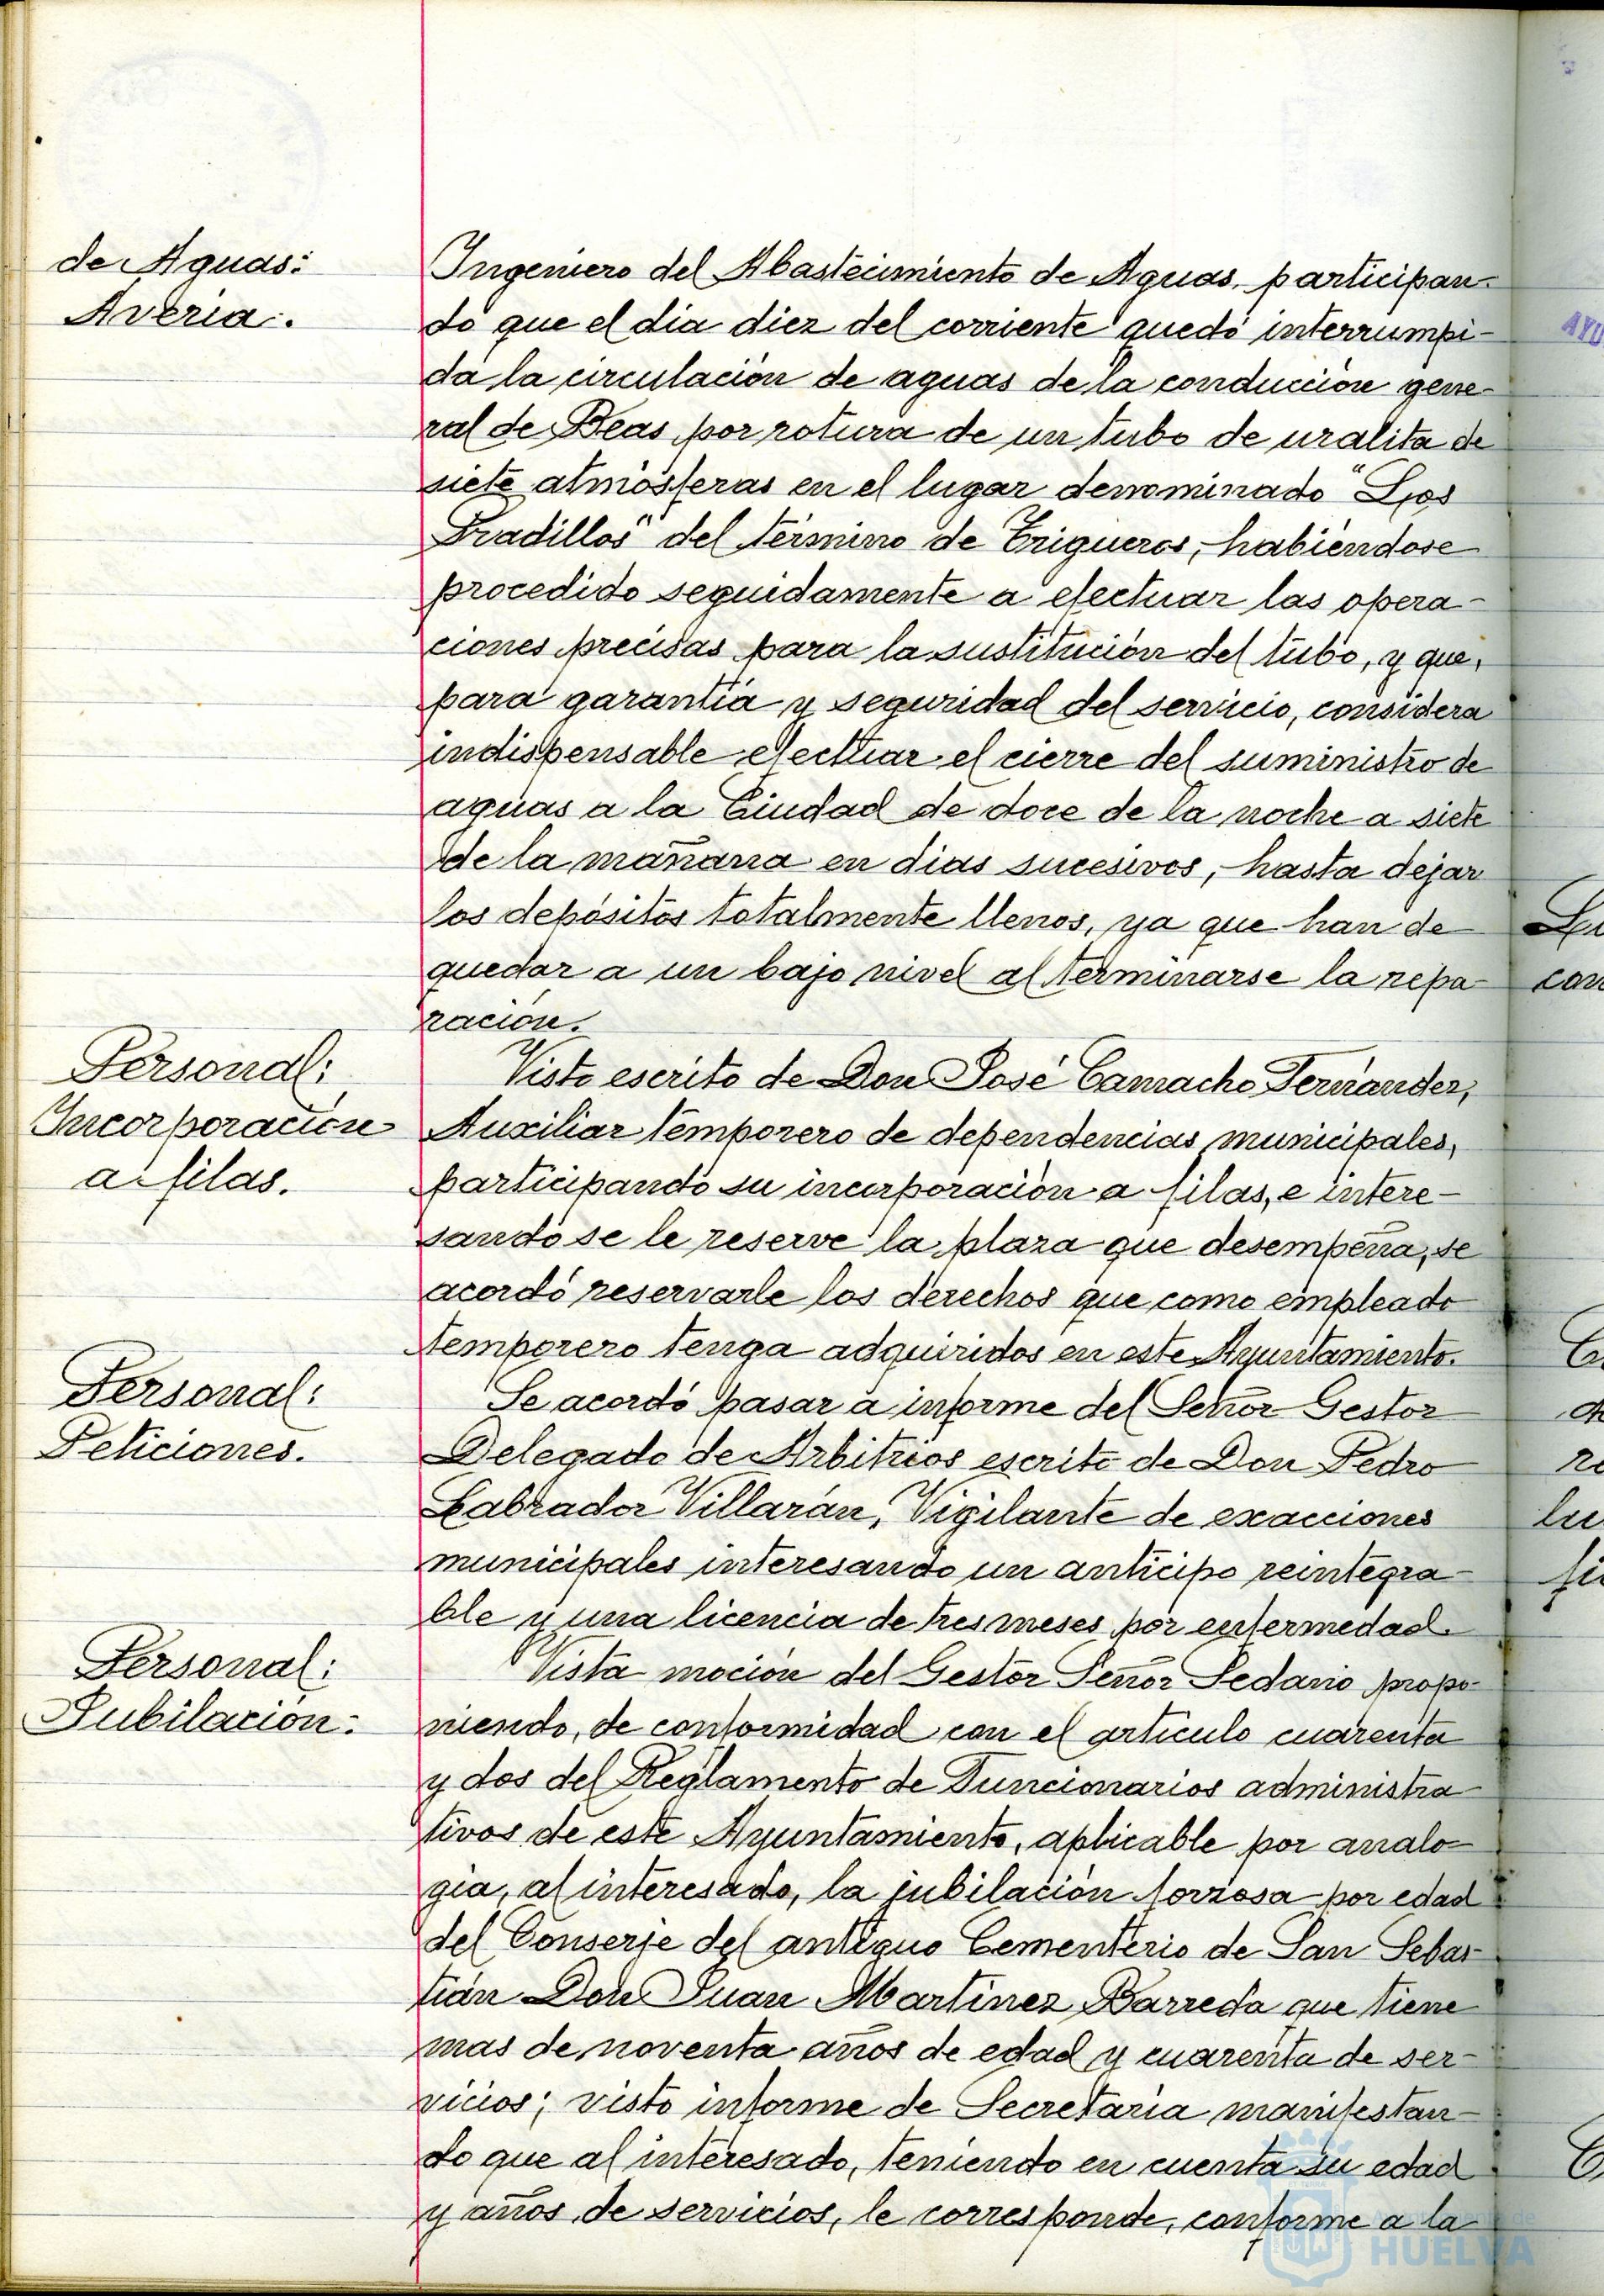 de Aguas:
Avería.
Ingeniero del Abastecimiento de Aguas, participan-
do que el dia diez del corriente quedó interrumpi-
da la circulación de aguas de la conducción gene-
ral de Beas por rotura de un tubo de uralita de
siete atmósferas en el lugar denominado "Los
Pradillos" del término de Trigueros, habiéndose
procedido seguidamente a efectuar las opera-
ciones precisas para la sustitución del tubo, y que,
para garantía y seguridad del servicio, considera
indispensable efectuar el cierre del suministro de
aguas a la Ciudad de doce de la noche a siete
de la mañana en dias sucesivos, hasta dejar
los depósitos totalmente llenos, ya que han de
quedar a un bajo nivel al terminarse la repa-
ración.
Personal:
Incorporación
a filas.
Visto escrito de Don José Camacho Fernandez,
Auxiliar temporero de dependencias municipales,
participando su incorporación a filas, e intere-
sando se le reserve la plaza que desempeña, se
acordó reservarle los derechos que como empleado
temporero tenga adquiridos en este Ayuntamiento.
Personal:
Peticiones.
Se acordó pasar a informe del Señor Gestor
Delegado de Arbitrios escrito de Don Pedro
Labrador Villarán, Vigilante de exacciones
municipales interesando un anticipo reintegra-
ble y una licencia de tres meses por enfermedad.
Personal:
Jubilación:
Vista moción del Gestor Señor Sedano propo-
niendo, de conformidad con el artículo cuarenta
y dos del Reglamento de Funcionarios administra-
tivos de este Ayuntamiento, aplicable por analo-
gía, al interesado, la jubilación forzosa por edad
del Conserje del antiguo Cementerio de San Sebas-
tián Don Juan Martinez Barreda que tiene
mas de noventa años de edad y cuarenta de ser-
vicios; visto informe de Secretaría manifestan-
do que al interesado, teniendo en cuenta su edad
y años de servicios, le corresponde, conforme a la
HUELVA